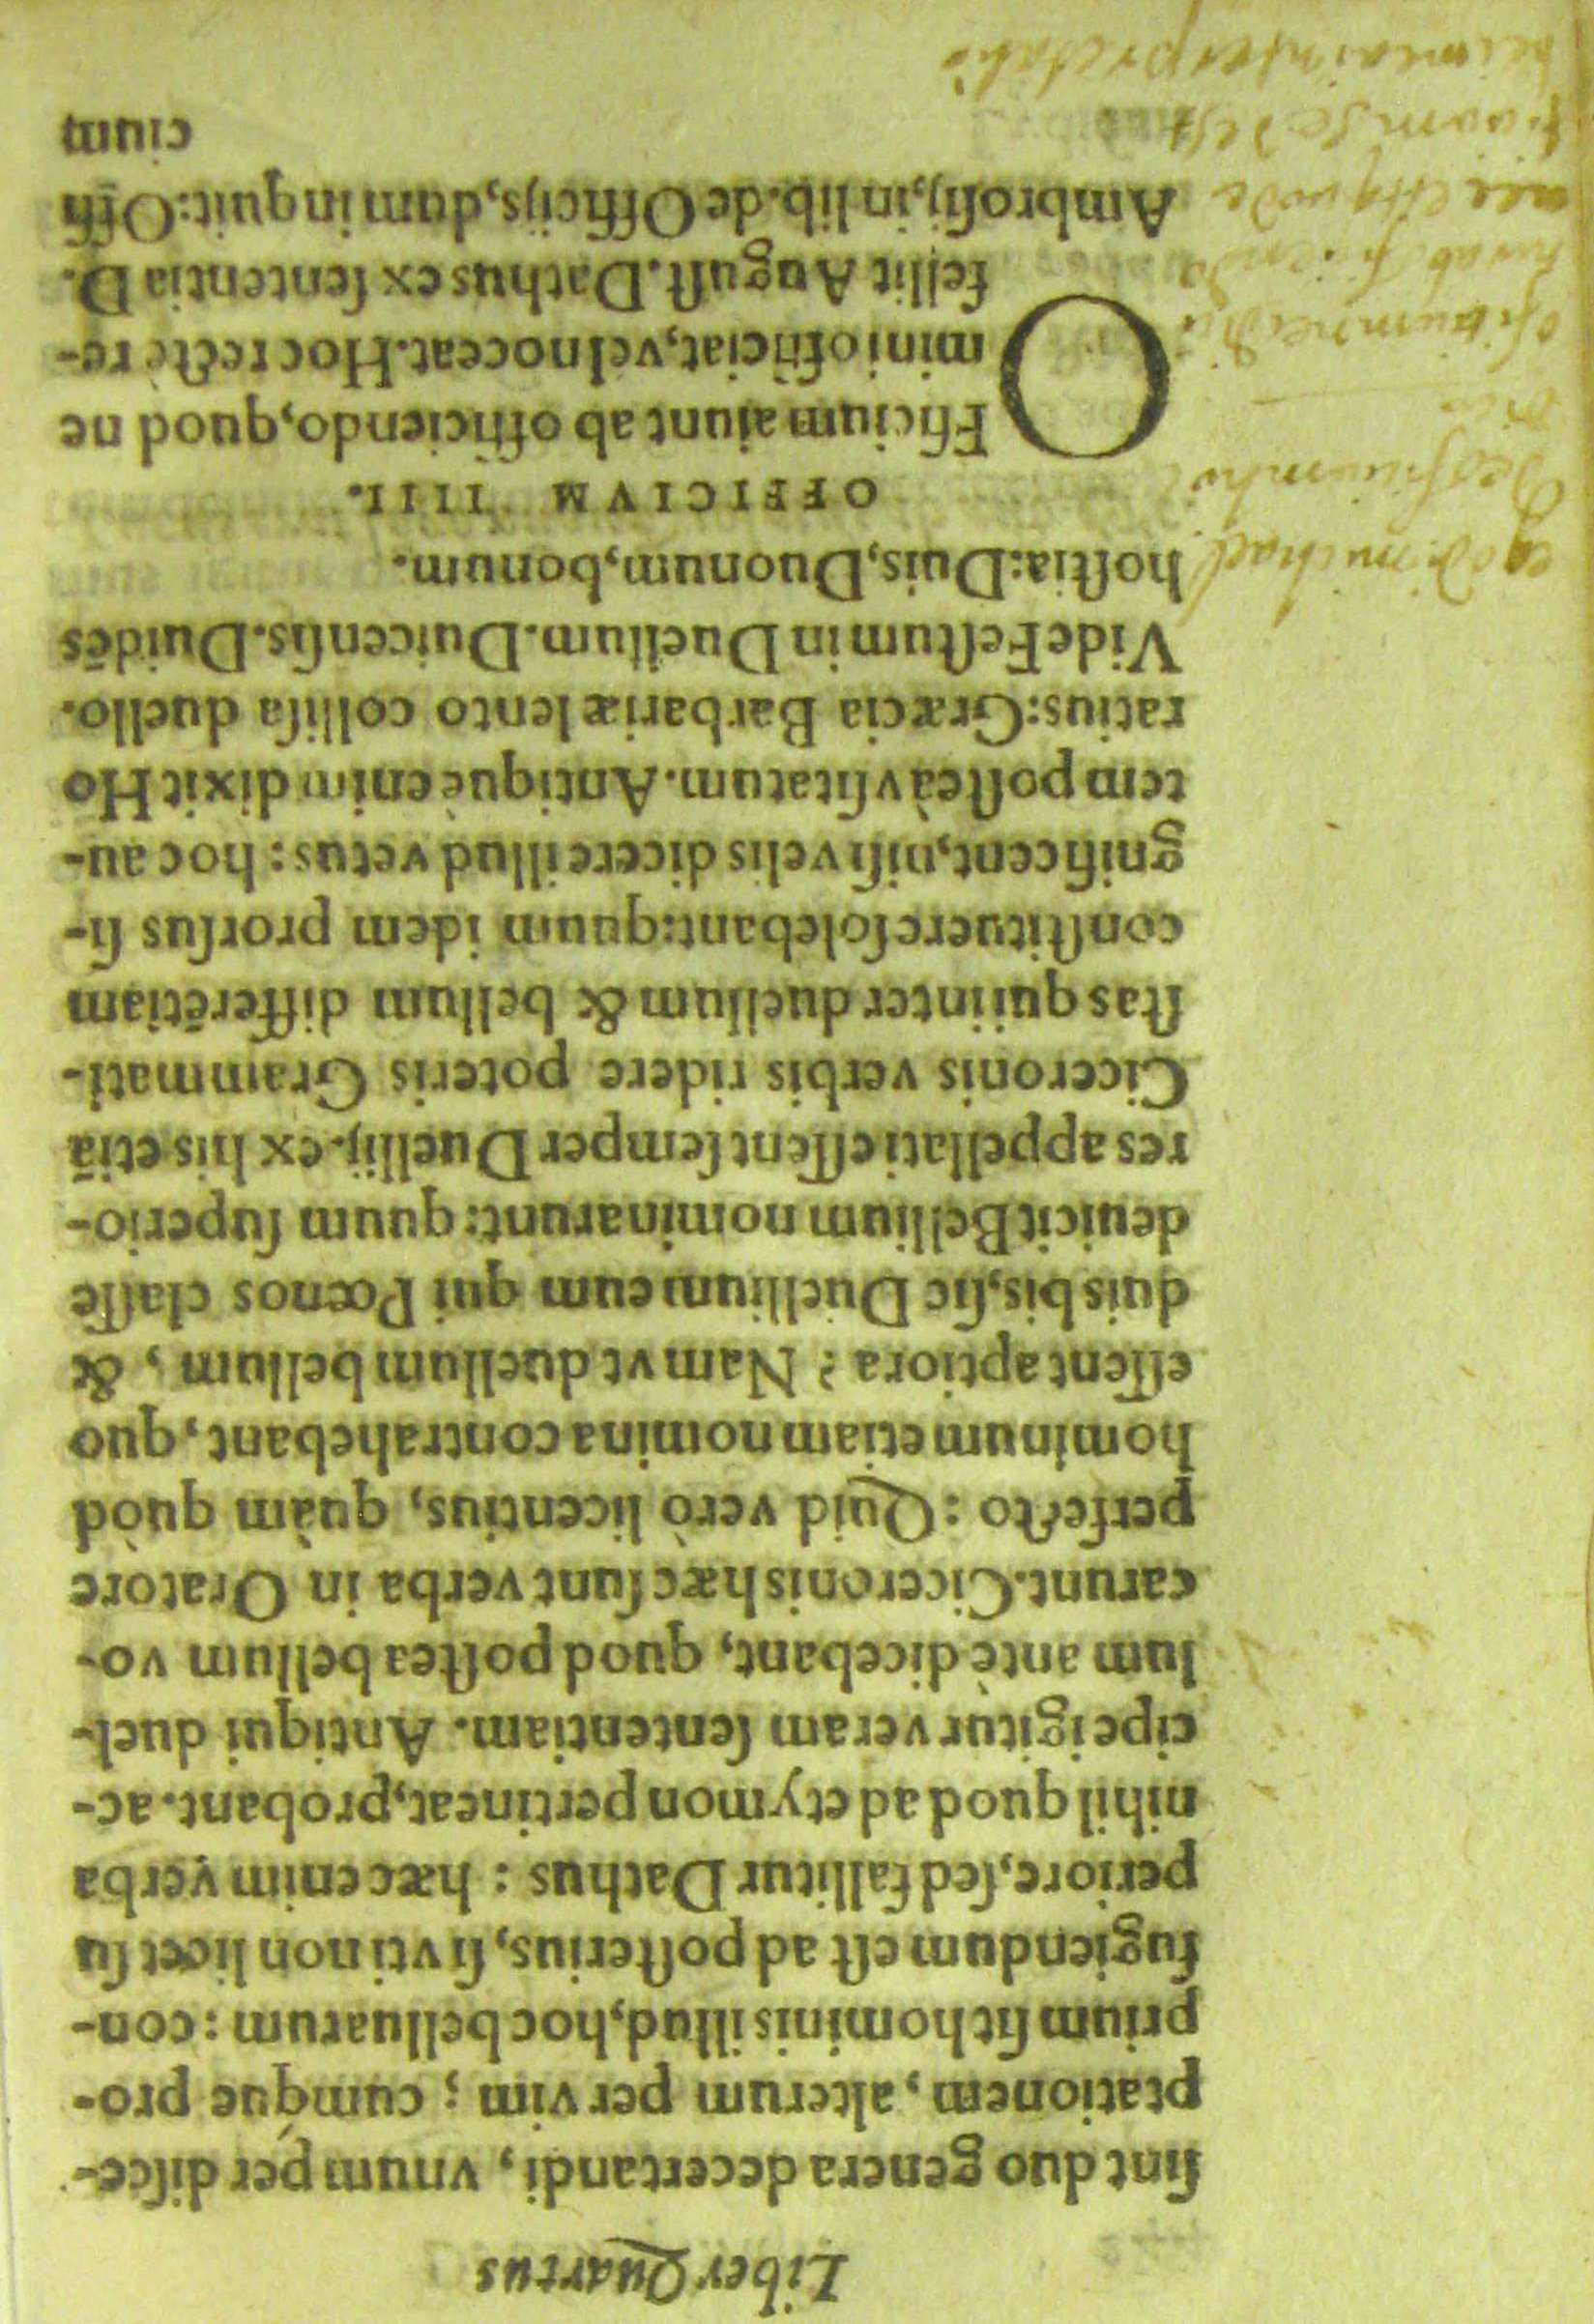 Liber Quartus
ſint duo genera decertandi, vnum per diſce-
ptationem, alterum per vim; cumque pro-
prium ſit hominis illud, hoc belluarum: con-
fugiendum eſt ad poſterius, ſi vti non licet ſu
periore, ſed fallitur Dathus: hæc enim verba
nihil quod ad etymon pertineat, probant. ac-
cipe igitur veram ſententiam. Antiqui duel-
lum antè dicebant, quod poſtea bellum vo-
carunt. Ciceronis hæc ſunt verba in Oratore
perfecto: Quid verò licentius, quàm quòd
hominum etiam nomina contrahebant, quo
eſſent aptiora? Nam vt duellum bellum, &
duis bis, ſic Duellium eum qui Pœnos claſſe
deuicit Bellium nominarunt: quum ſuperio-
res appellati eſſent ſemper Duellij. ex his etiā
Ciceronis verbis ridere poteris Grammati-
ſtas qui inter duellum & bellum differētiam
conſtituere ſolebant: quum idem prorſus ſi-
gnificent, niſi velis dicere illud vetus: hoc au-
tem poſteà vſitatum. Antiquè enim dixit Ho
ratius: Græcia Barbariæ lento colliſa duello.
Vide Feſtum in Duellum. Duicenſis. Duidēs
hoſtia: Duis, Duonum, bonum.
OFFICIVM IIII.
OFficium aiunt ab officiendo, quod ne
mini officiat, vel noceat. Hoc rectè re-
fellit Auguſt. Dathus ex ſententia D.
Ambroſij, in lib. de Officijs, dum inquit: Offi
cium